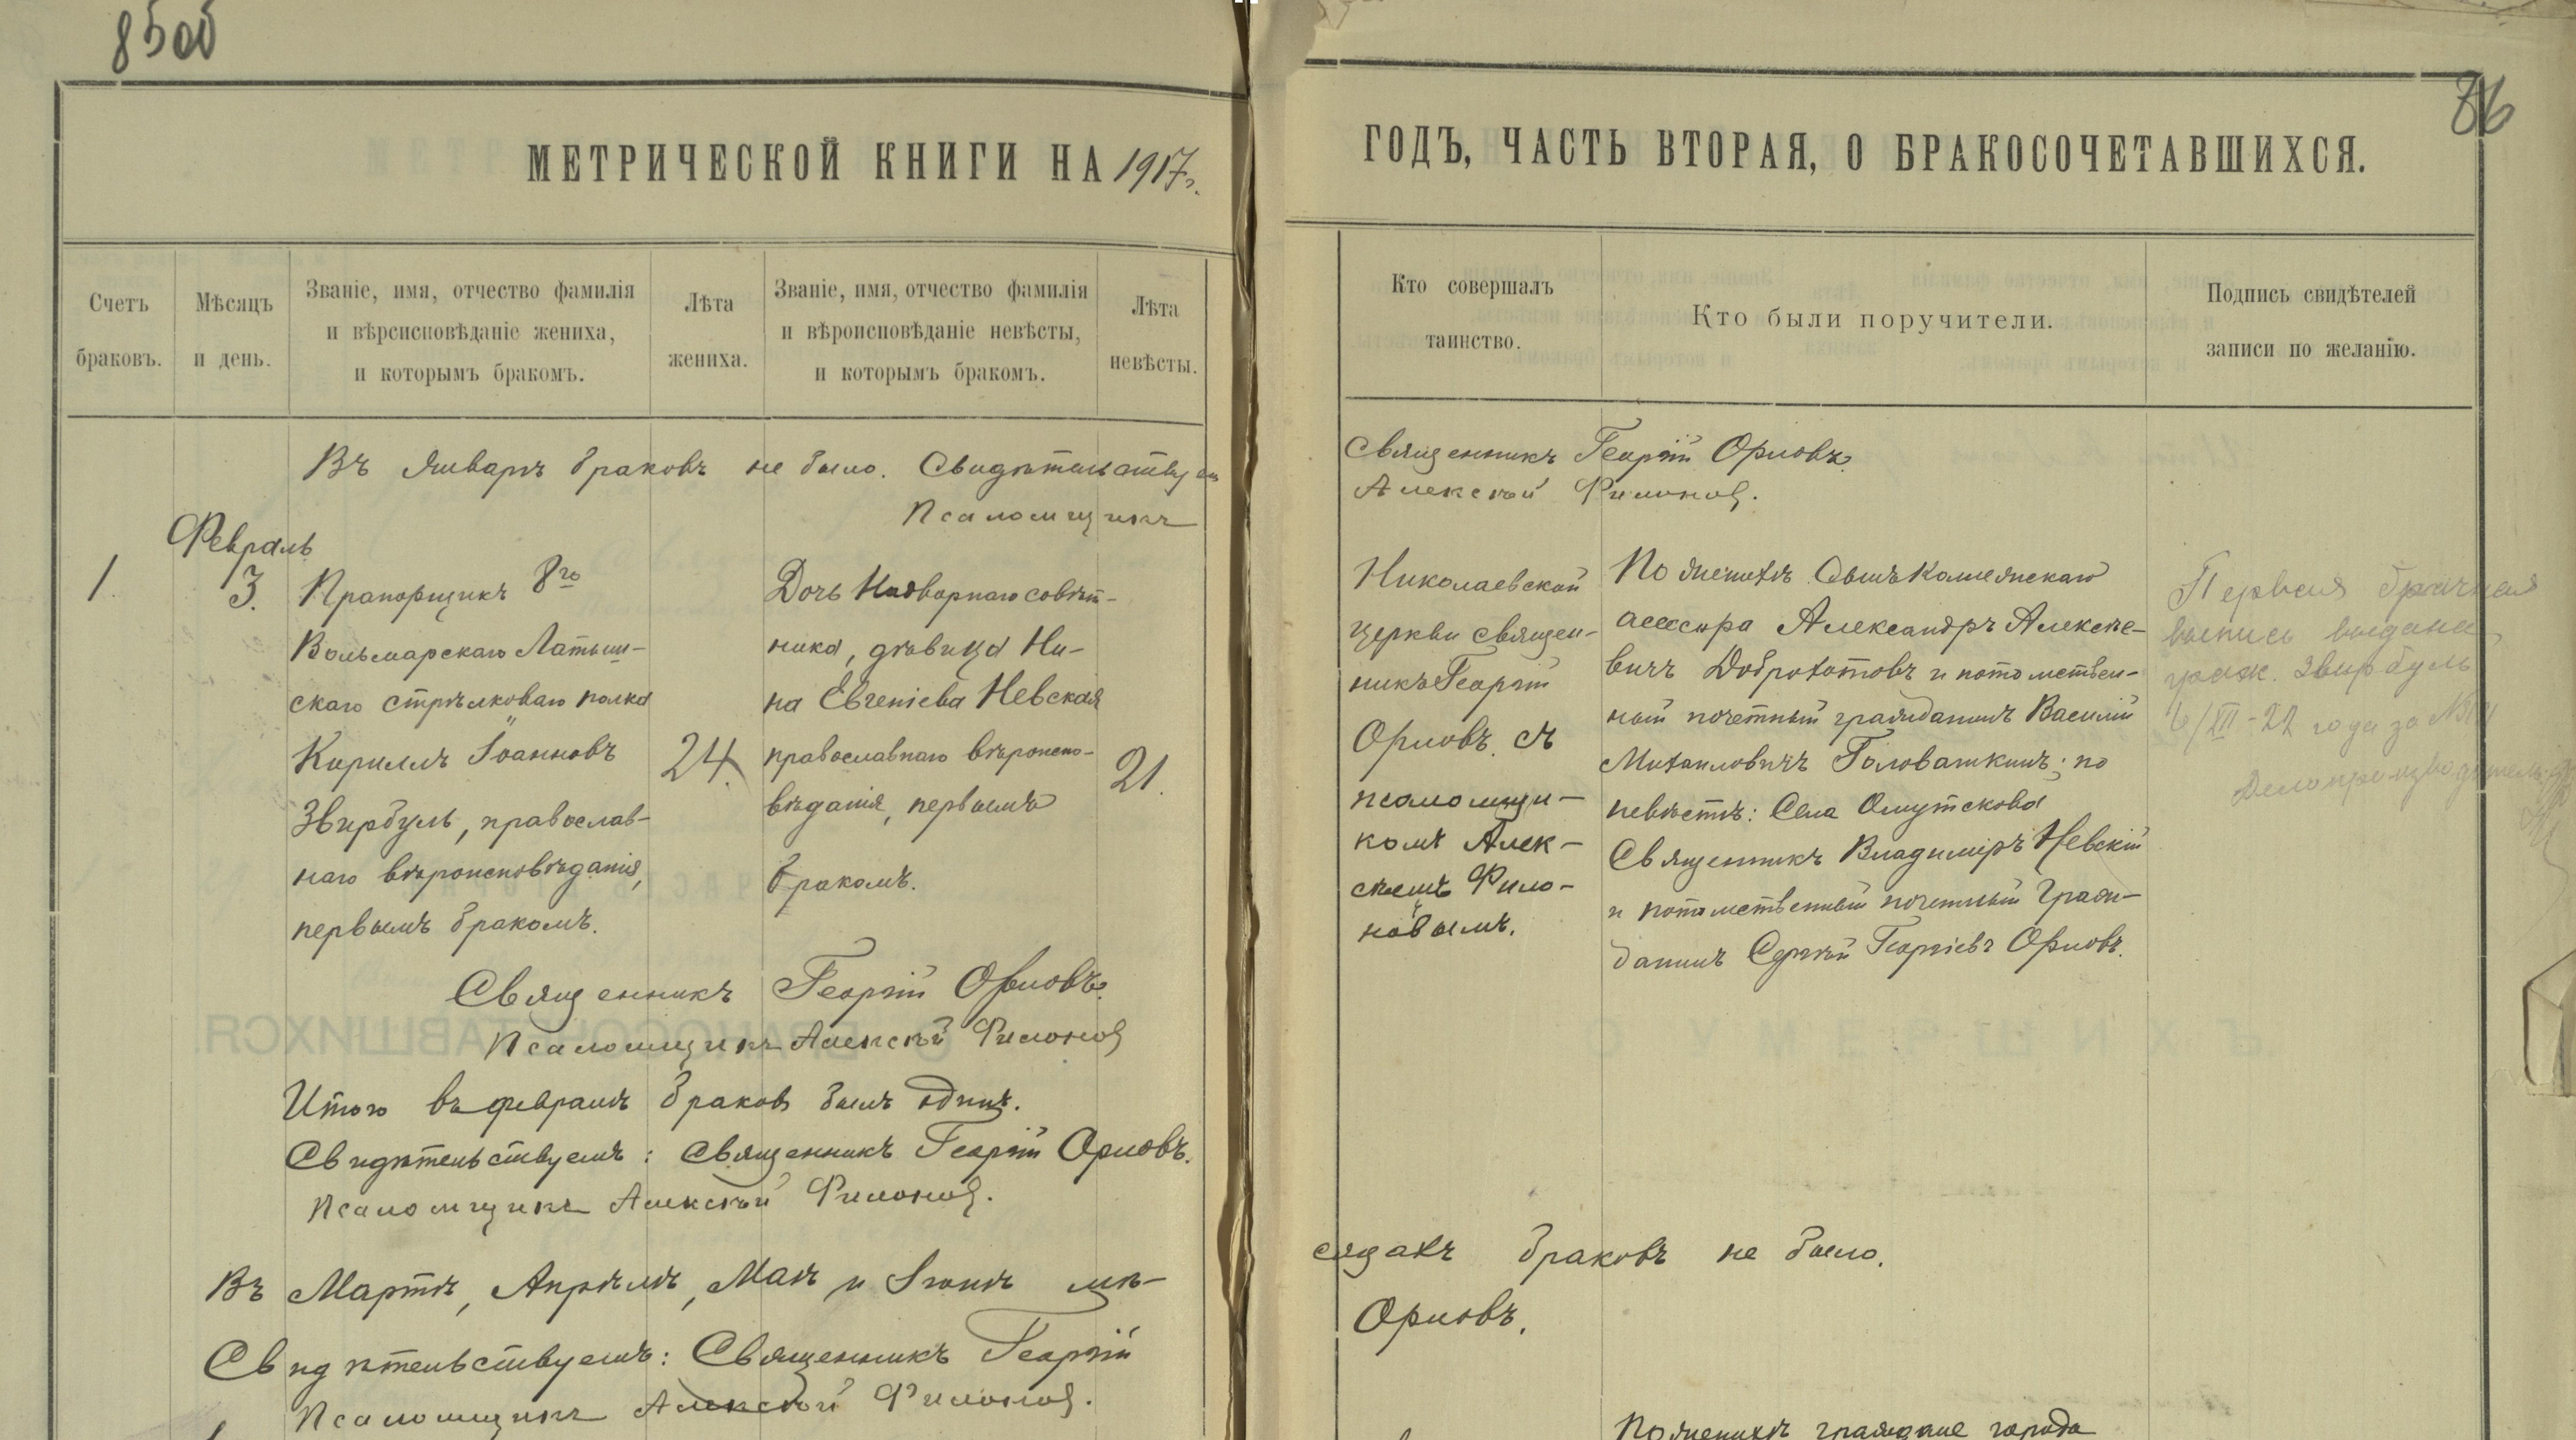 85об
86
МЕТРИЧЕСКОЙ КНИГИ НА 1917 г.
ГОДЪ, ЧАСТЬ ВТОРАЯ, О БРАКОСОЧЕТАВШИХСЯ.
Счетъ
браковъ.
Мѣсяцъ
и день.
Званіе, имя, отчество фамилія
и вѣрсисповѣданіе жениха,
и которымъ бракомъ.
Лѣта
жениха.
Званіе, имя, отчество фамилія
и вѣроисповѣданіе невѣсты,
и которымъ бракомъ.
Лѣта
невѣсты.
Кто совершалъ
таинство.
Кто были поручители.
Подпись свидѣтелей
записи по желанію.
Въ Январѣ браковъ не было. Свидѣтельствуемъ
Священникъ Георгій Орловъ.
Псаломщикъ
Алексѣй Филоновъ.
Февраль
1.
3.
Прапорщикъ 8го
Вольмарскаго Латыш-
скаго стрѣлковаго полка
Кириллъ Іоанновъ
Звирбуль, православ-
наго вѣроисповѣданія,
первымъ бракомъ.
24.
Дочь Надворнаго совѣт-
ника, дѣвица Ни-
на Евгеніева Невская
православнаго вѣроиспо-
вѣданія, первымъ
бракомъ.
21.
Николаевской
церкви священ-
никъ Георгій
Орловъ съ
псаломщи-
комъ Алек-
сѣемъ Фило-
новымъ.
По женихѣ: Сынъ Коллежскаго
ассесора Александръ Алексѣе-
вичъ Доброхотовъ и потомствен-
ный почетный гражданинъ Василій
Михаиловичъ Головашкинъ; по
невѣстѣ: Села Омутскова
Священникъ Владиміръ Невскій
и потомственный почетный граж-
данинъ Сергѣй Георгіевъ Орловъ.
Первая брачная
выпись выдана
граж. Звирбуль
6/XII-22 года за №
Делопроизводитель
Священникъ Георгій Орловъ.
Псаломщикъ Алексѣй Филоновъ
Итого въ февралѣ браковъ былъ одинъ.
Свидѣтельствуемъ: Священникъ Георгій Орловъ.
Псаломщикъ Алексѣй Филоновъ.
Въ Мартѣ, Апрѣлѣ, Маѣ и Іюнѣ мѣ-
сяцахъ браковъ не было.
Свидѣтельствуемъ: Священникъ Георгій
Орловъ.
Псаломщикъ Алексѣй Филоновъ.
По женихѣ граждане города